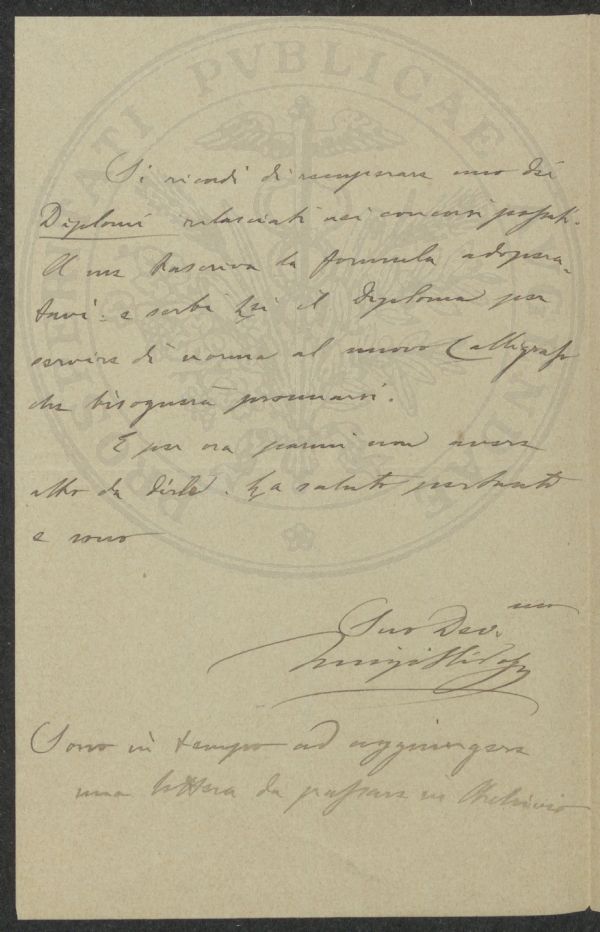 Si ricordi di recuperare uno dei
Diplomi rilasciati nei concorsi passati.
A me trascriva la formula adopera-
tavi: e serbi Lei il Diploma per
servire di norma al nuovo Calligrafo
che bisognerà procurarsi.
E per ora parmi non avere
altro da dirle. La saluto pertanto
e sono
Suo Dev.mo
Luigi
Sono in tempo ad aggiungere
una lettera da passare in Archivio
PVBLICAE